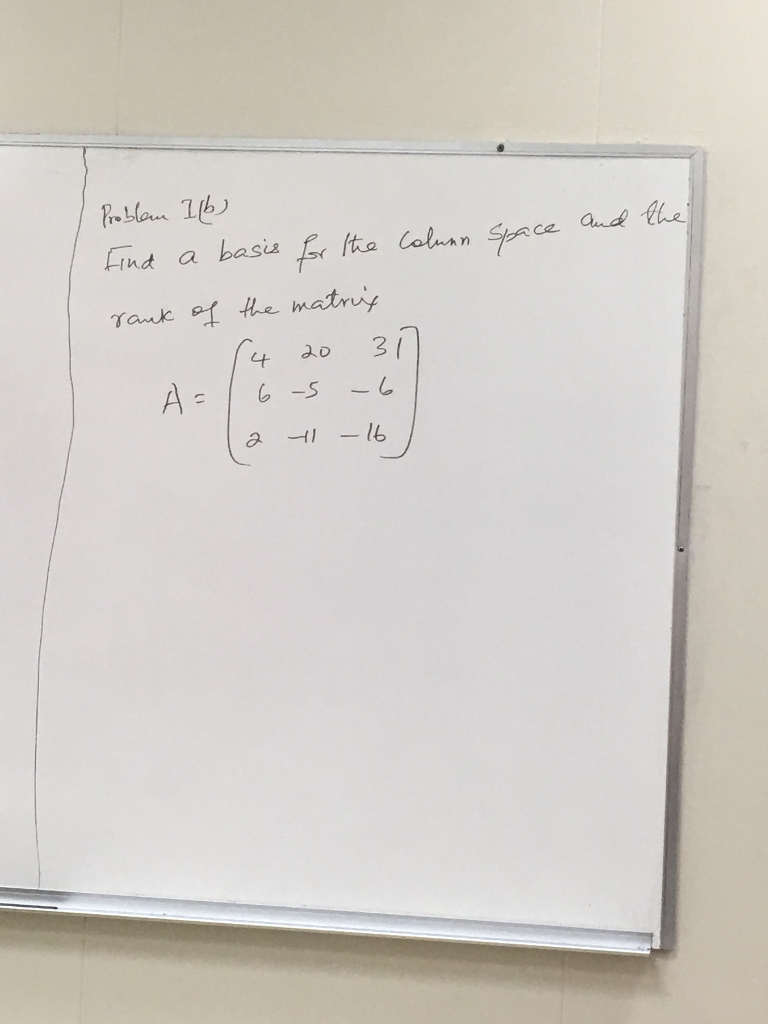 Problem 1(b)
Find a basis for the Column Space and the
rank of the matrix
4 20 31
A = 6 -5 -6
2 -11 -16